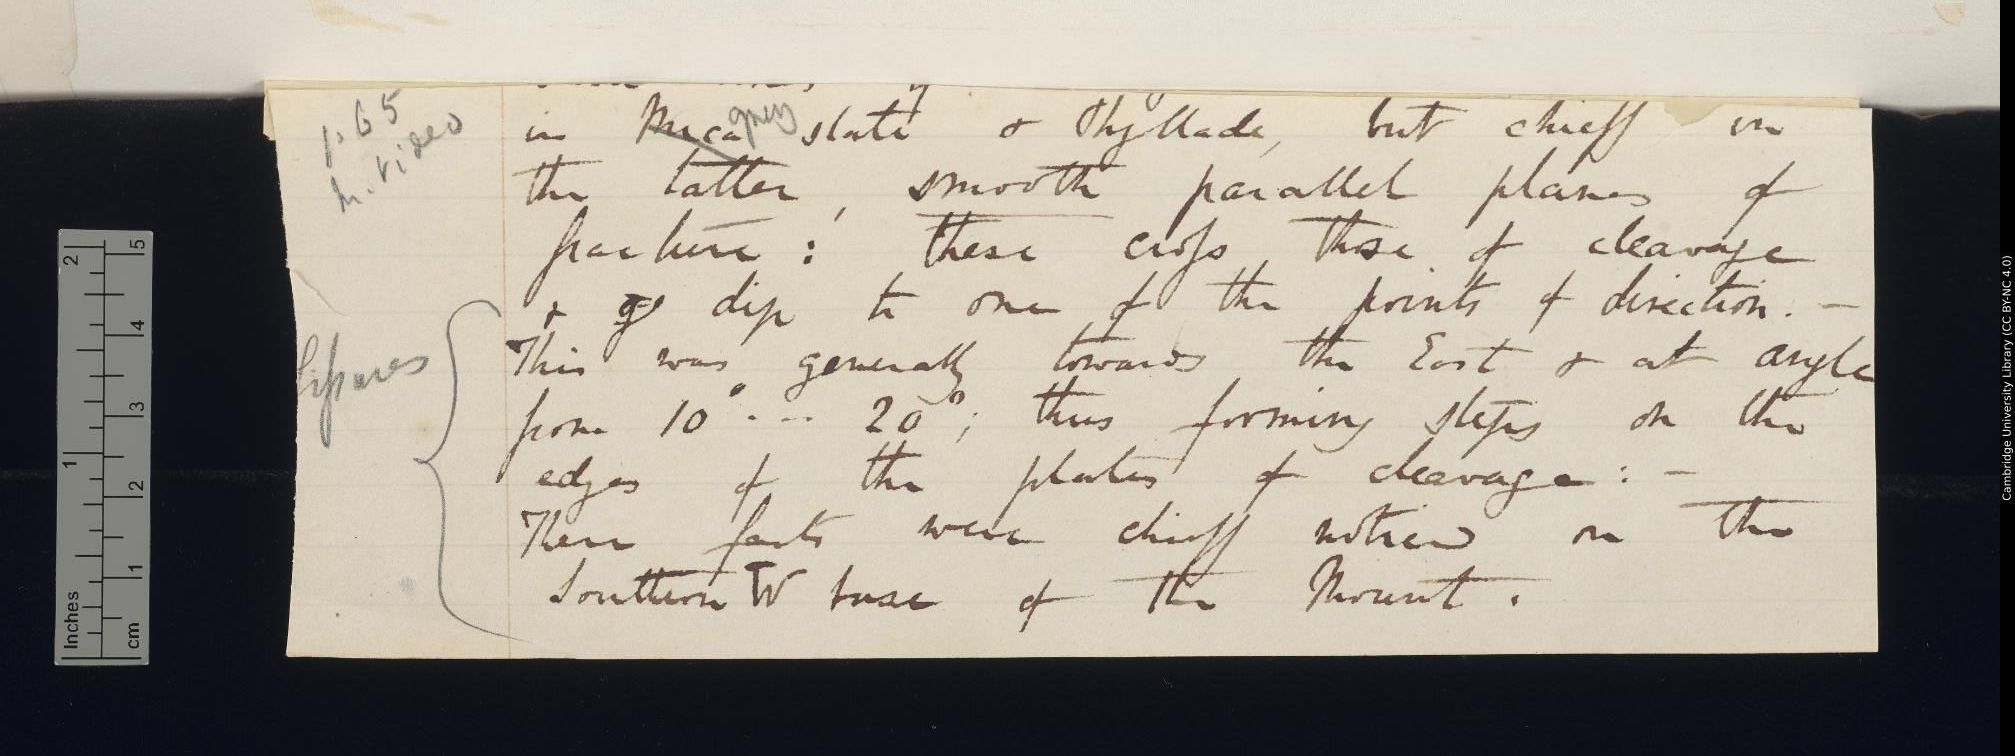 1.65
M. Video
in Mica gneiss slate & Phyllade, but chiefly in
the latter, smooth parallel planes of
fracture: these cross those of cleavage
& dip to one of the points of direction. —
This was generally towards the East & at angle
from 10° --- 20°; thus forming steps on the
edges of the plates of cleavage: —
These facts were chiefly noticed on the
Southern W base of the Mount.
fissures
Inches 1 2
cm 1 2 3 4 5
Cambridge University Library (CC BY-NC 4.0)